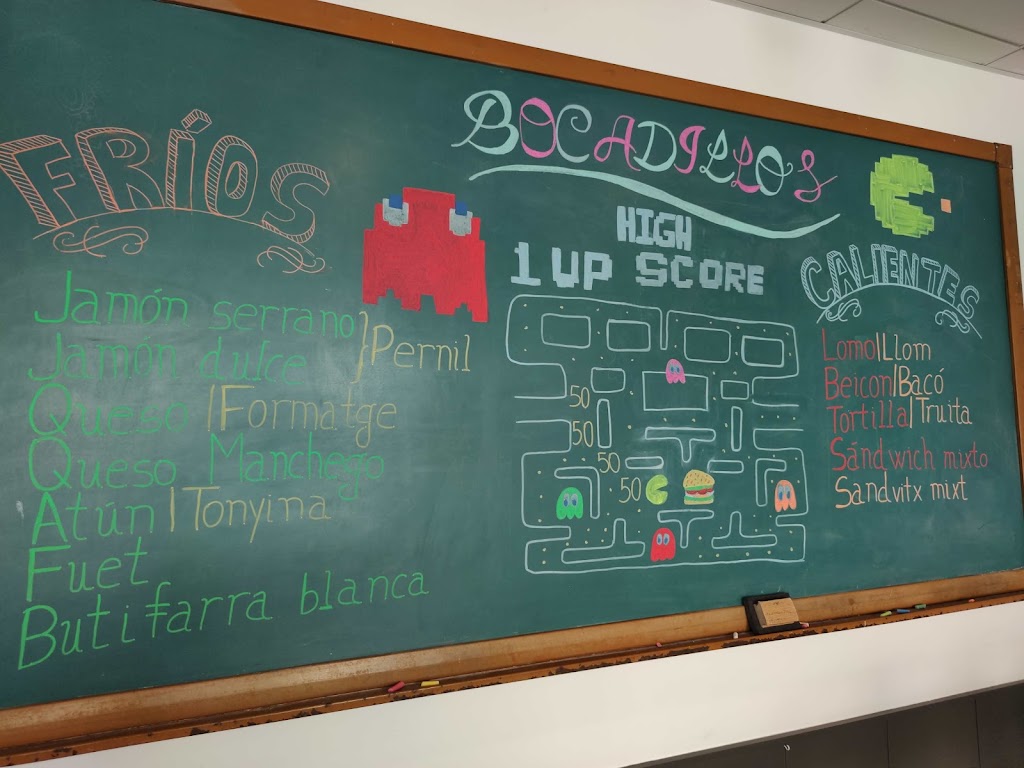 BOCADILLOS
FRÍOS
Jamón serrano
Jamón dulce } Pernil
Queso | Formatge
Queso Manchego
Atún | Tonyina
Fuet
Butifarra blanca
HIGH
1UP SCORE
50
50
50
50
CALIENTES
Lomo|Llom
Beicon|Bacó
Tortilla|Truita
Sándwich mixto
Sandvitx mixt